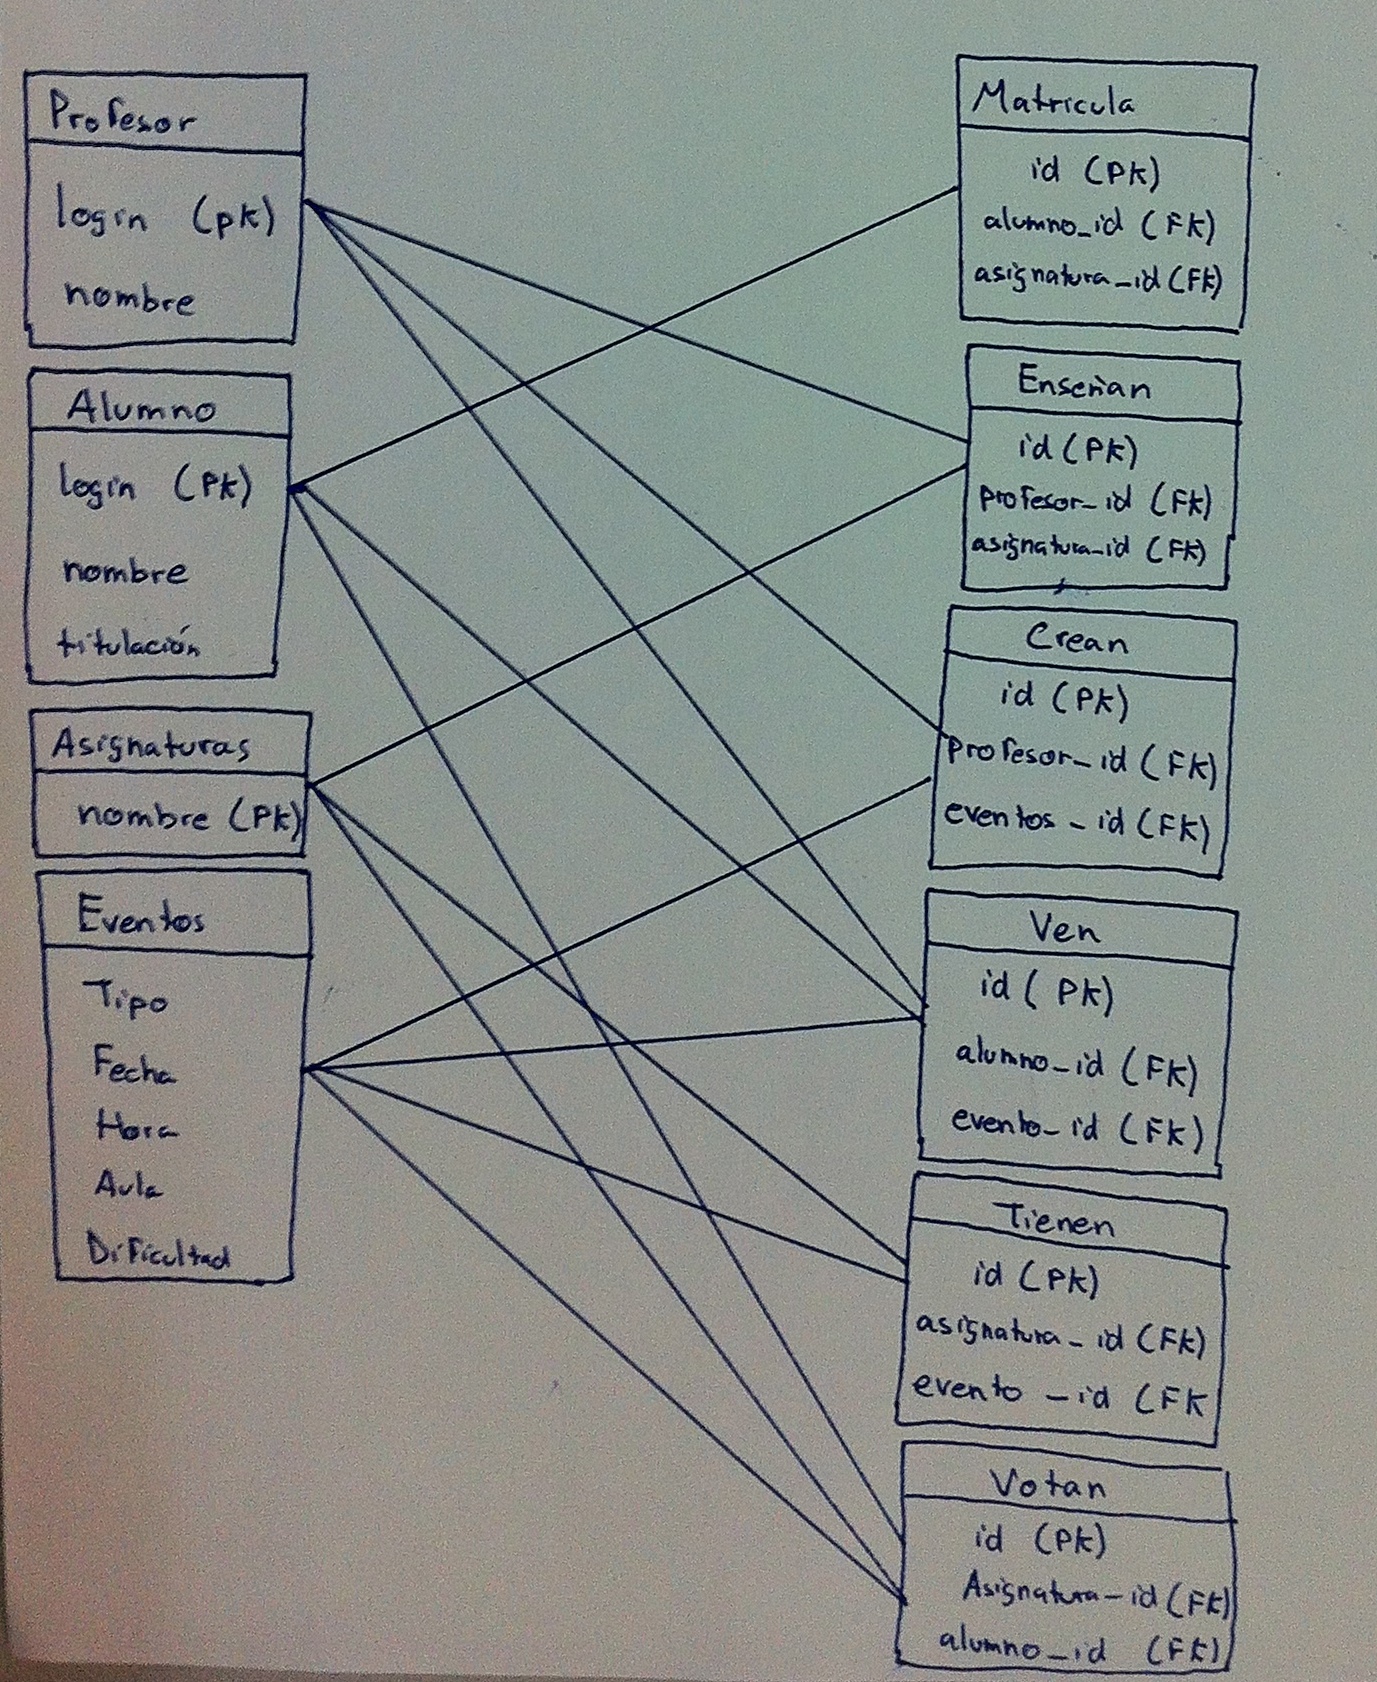 Profesor
login (pk)
nombre
Alumno
login (Pk)
nombre
titulación
Asignaturas
nombre (Pk)
Eventos
Tipo
Fecha
Hora
Aula
Dificultad
Matricula
id (Pk)
alumno_id (Fk)
asignatura_id (Fk)
Enseñan
id (Pk)
profesor_id (Fk)
asignatura_id (Fk)
Crean
id (Pk)
profesor_id (Fk)
eventos_id (Fk)
Ven
id (Pk)
alumno_id (Fk)
evento_id (Fk)
Tienen
id (Pk)
asignatura_id (Fk)
evento_id (Fk
Votan
id (Pk)
Asignatura_id (Fk)
alumno_id (Fk)